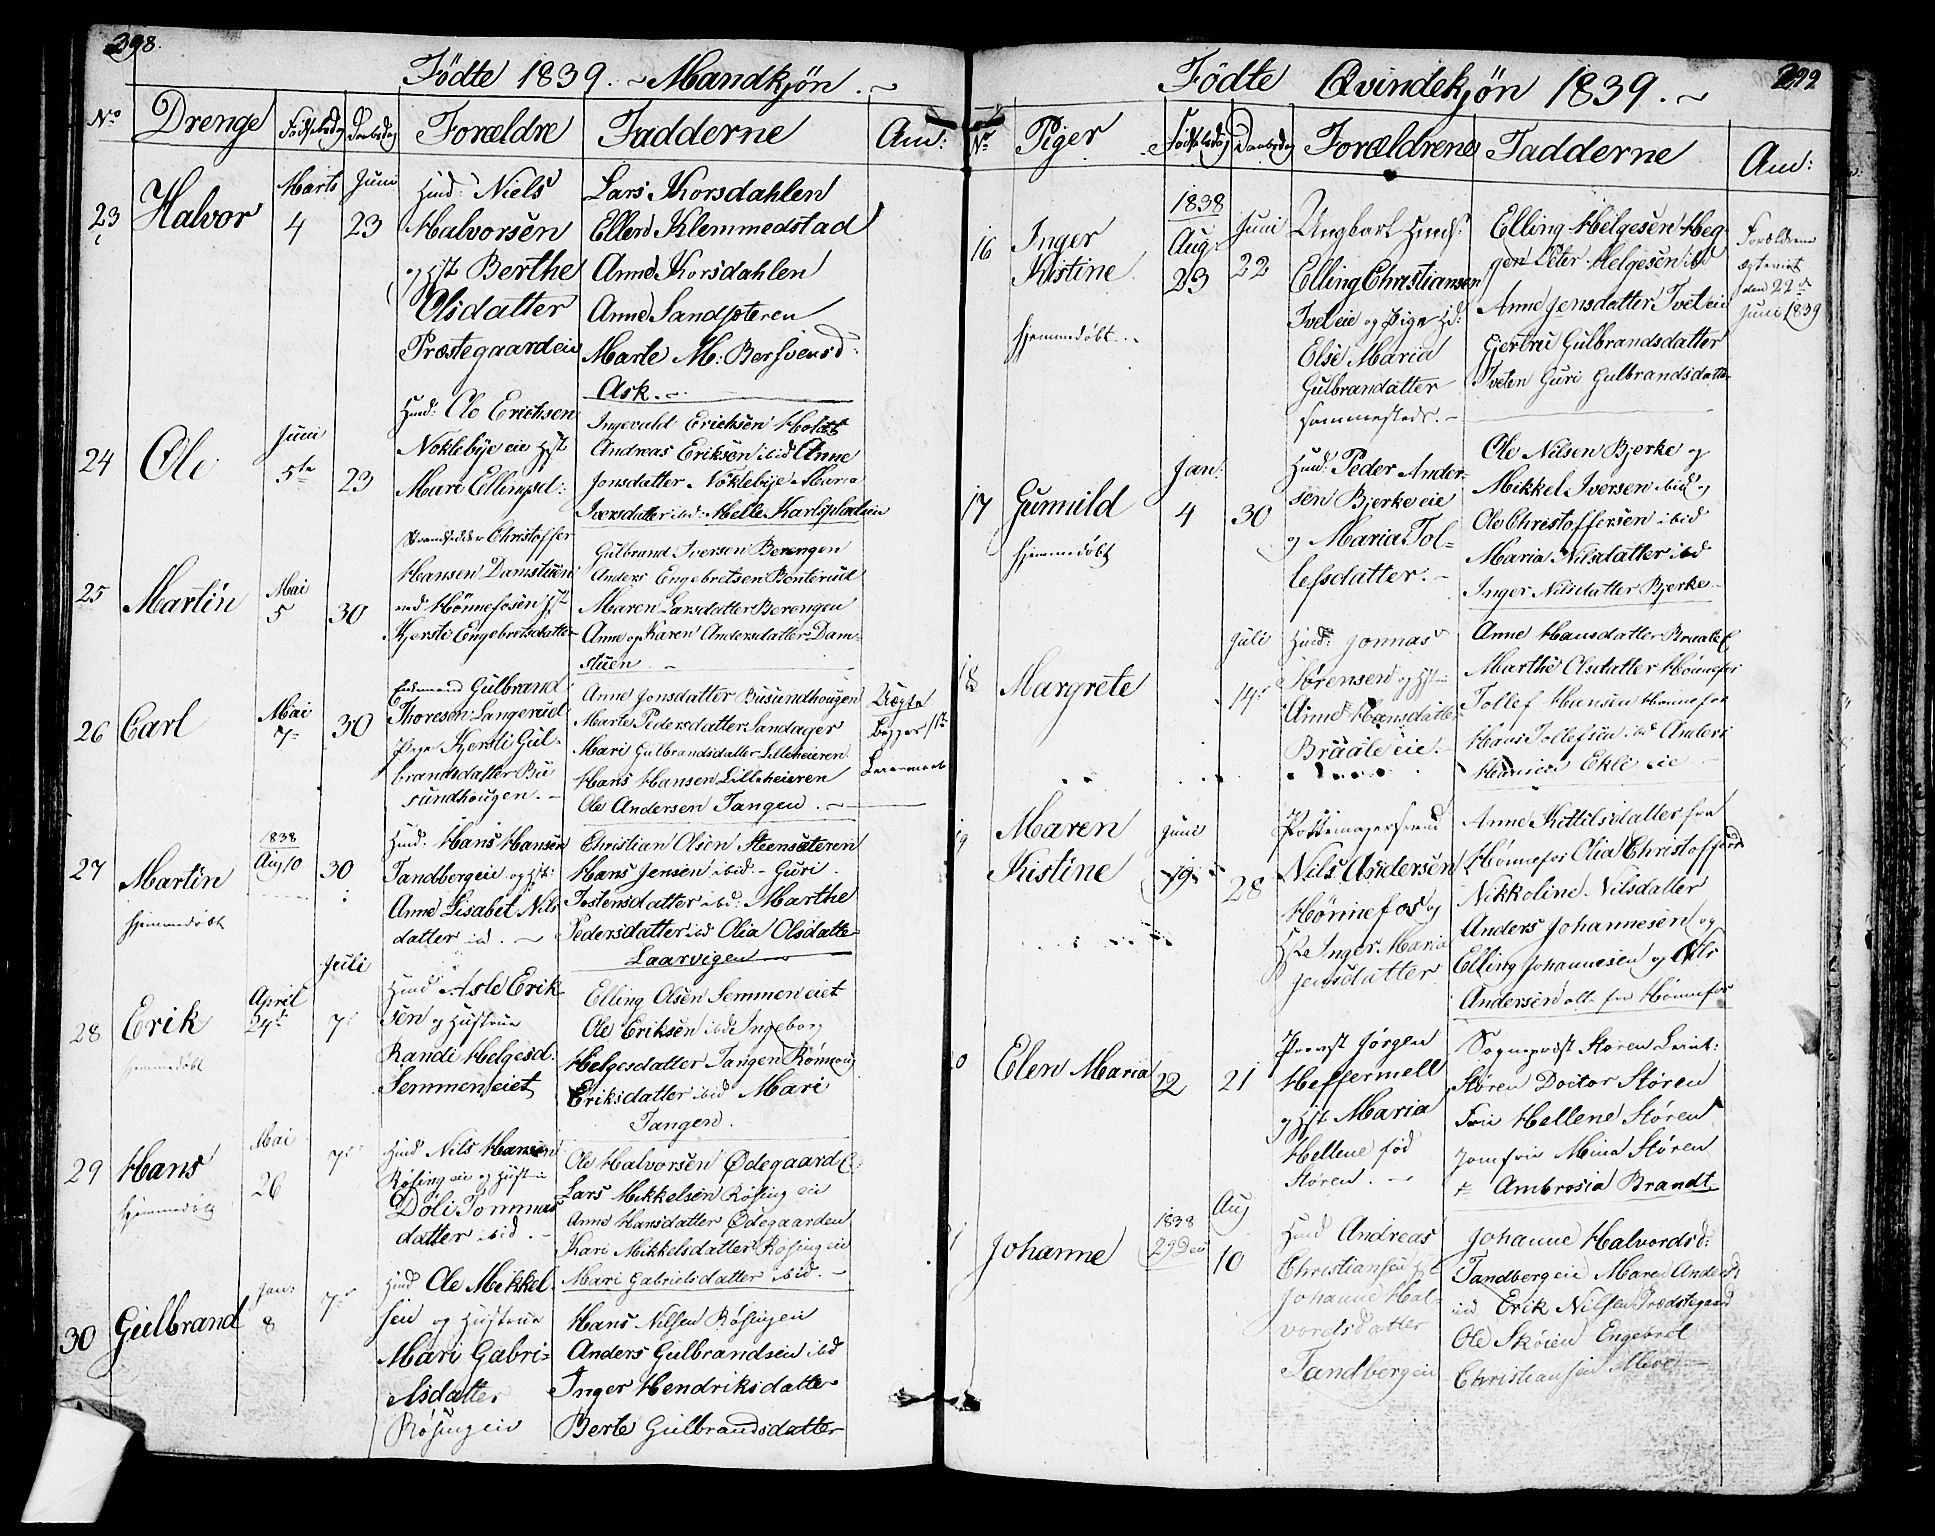 398.
Födte 1839. ~ Mandkjön. ~
No Drenge Födselsdag Daabsdag Forældre Fadderne Anm:
23 Halvor Marts 4 Juni 23
Huusm: Niels
Halvorsen
og Hst Berthe
Olsdatter
Præstegaardeie
Lars Korsdahlen
Ellen Klemmedstad
Anne Korsdahlen
Anne Sandsøteren
Marte M: Bersvensd:
Ask. -
24 Ole Juni 5te 23
Huusm: Ole Erichsen
Noklebye eie Hst
Mari Ellingsd:
Ingevald Erichsen Holdt
Andreas Eriksen ibid Anne
Jonsdatter Noklebye Maria
Iversdatter ibid: Helle Karlspladsen
25 Martin Mai 5 30
Christoffer
Hansen Damstuen
ved Hönnefosen Hst
Kjersti Engebretsdatter
Gulbrand Iversen Berengen
Anders Engebretsen Benterud
Maren Larsdatter Berengen
Anne og Karen Andersdatter Dam-
stuen. -
26 Carl Mai 7 30
Gulbrand
Thoresen Langerud
Pige Kjersti Gul-
brandsdatter Bu
sundhougen. -
Anne Jonsdatter Busundhougen
Marte Pedersdatter Sandager
Mari Gulbrandsdatter Lilleheieren
Hans Hansen Lilleheieren
Ole Andersen Tangen. -
Uægte
Begges 1te
Leiermaal
27 Martin 1838 Aug 10 30
hjemmedöbt
Huusm: Hans Hansen
Tandbergeie og Hst:
Anne Lisabet Nils
datter ibid. ~
Christian Olsen Steensæteren
Hans Jensen ibid - Guri
Tostensdatter ibid: Marthe
Pedersdatter ibid Olia Olsdatter
Laarvigen
28 Erik April 24de Juli 7
hjemmedöbt
Huusm Asle Erik
sen og Hustrue
Randi Helgesd.
Semmen eiet
Elling Olsen Semmen eiet
Ole Eriksen ibid Ingeborg
Helgesdatter Tangen Rönnoug
Eriksdatter ibid Mari
Tangen.
29 Hans Mai 26 7
hjemmedöbt
Huusm Nils Hansen
Røsingeie og Hustrue
Doli Tommas
datter ibid. -
Ole Halvorsen Ødegaard
Lars Mikkelsen Røsing eie
Anne Hansdatter Ødegaarden
Kari Mikkelsdatter Røsing eie
Mari Gabrielsdatter ibid. -
30 Gulbrand Jan: 8 7
Huusm Ole Mikkel
sen og Hustrue
Mari Gabri=
elsdatter
Røsingeie
Hans Nilsen Røsingeie
Anders Gulbrandsen ibid
Inger Hendriksdatter
Berte Gulbrandsdatter
Födte Qvindekjön 1839. ~
No Piger Födselsdag Daabsdag Forældrene Fadderne Anm:
16 Inger
Kistine 1838 Aug: 23 Juni 22
hjemmedöbt. -
Ungkarl Huusm:
Elling Christiansen
Tvet eie og Pige
Else Maria
Gulbrandatter
sammesteds. -
Elling Helgesen Heg-
gen Peter Helgesen ibid
Anne Jensdatter Tvet eie
Gjertru Gulbrandsdatter
Tveten Guri Gulbrandsdatter
Forældrene
ægteviet
den 22de
Juni 1839
17 Gunnild Jan: 4 30
hjemmedöbt
Huusm: Peder Ander-
sen Bjerke eie
og Maria Tol=
lefsdatter. -
Ole Nilsen Bjerke og
Mikkel Iversen ibid og
Ole Christoffersen ibid
Maria Nilsdatter ibid
Inger Nilsdatter Bjerke
18 Margrete Juli 14
Huusm: Jonnas
Sørensen og Hst
Anne Hansdatter
Braate eie. -
Anne Hansdatter Braate
Marthe Olsdatter Hönnefos
Tollef Hansen Hönnefos
Hans Tollefsen ibid Anders
Hansen Ekli eie
19 Maren
Kistine Juni 19 28
Pottemagersvend
Nils Andersen
Hönnefos og
Hst Inger Maria
Jensdatter
Anne Kittilsdatter fra
Hönnefos Olia Christoffersd
Nikkoline Nilsdatter
Anders Johannesen og
Elling Johannesen og Nils
Andersen alle fra Hönnefos
Elen Maria 22 21
Provst Jörgen
Heffermell
og Hst Maria
Hellene föd
Støren. -
Sogneprest Støren Leint:
Støren Doctor Støren
Frue Hellene Støren
Jomfru Mina Støren
Ambrosia Brandt
Johanne 1838 29 Dec Aug 10
Huusm Andreas
Christiansen Hst
Johanne Hal-
vordsdatter
Tandbergeie
Johanne Halvordsd:
Tandbergeie Maren Andersd
ibid Erik Nilsen Prædstegaard
Ole Skøien Engebret
Christiansen